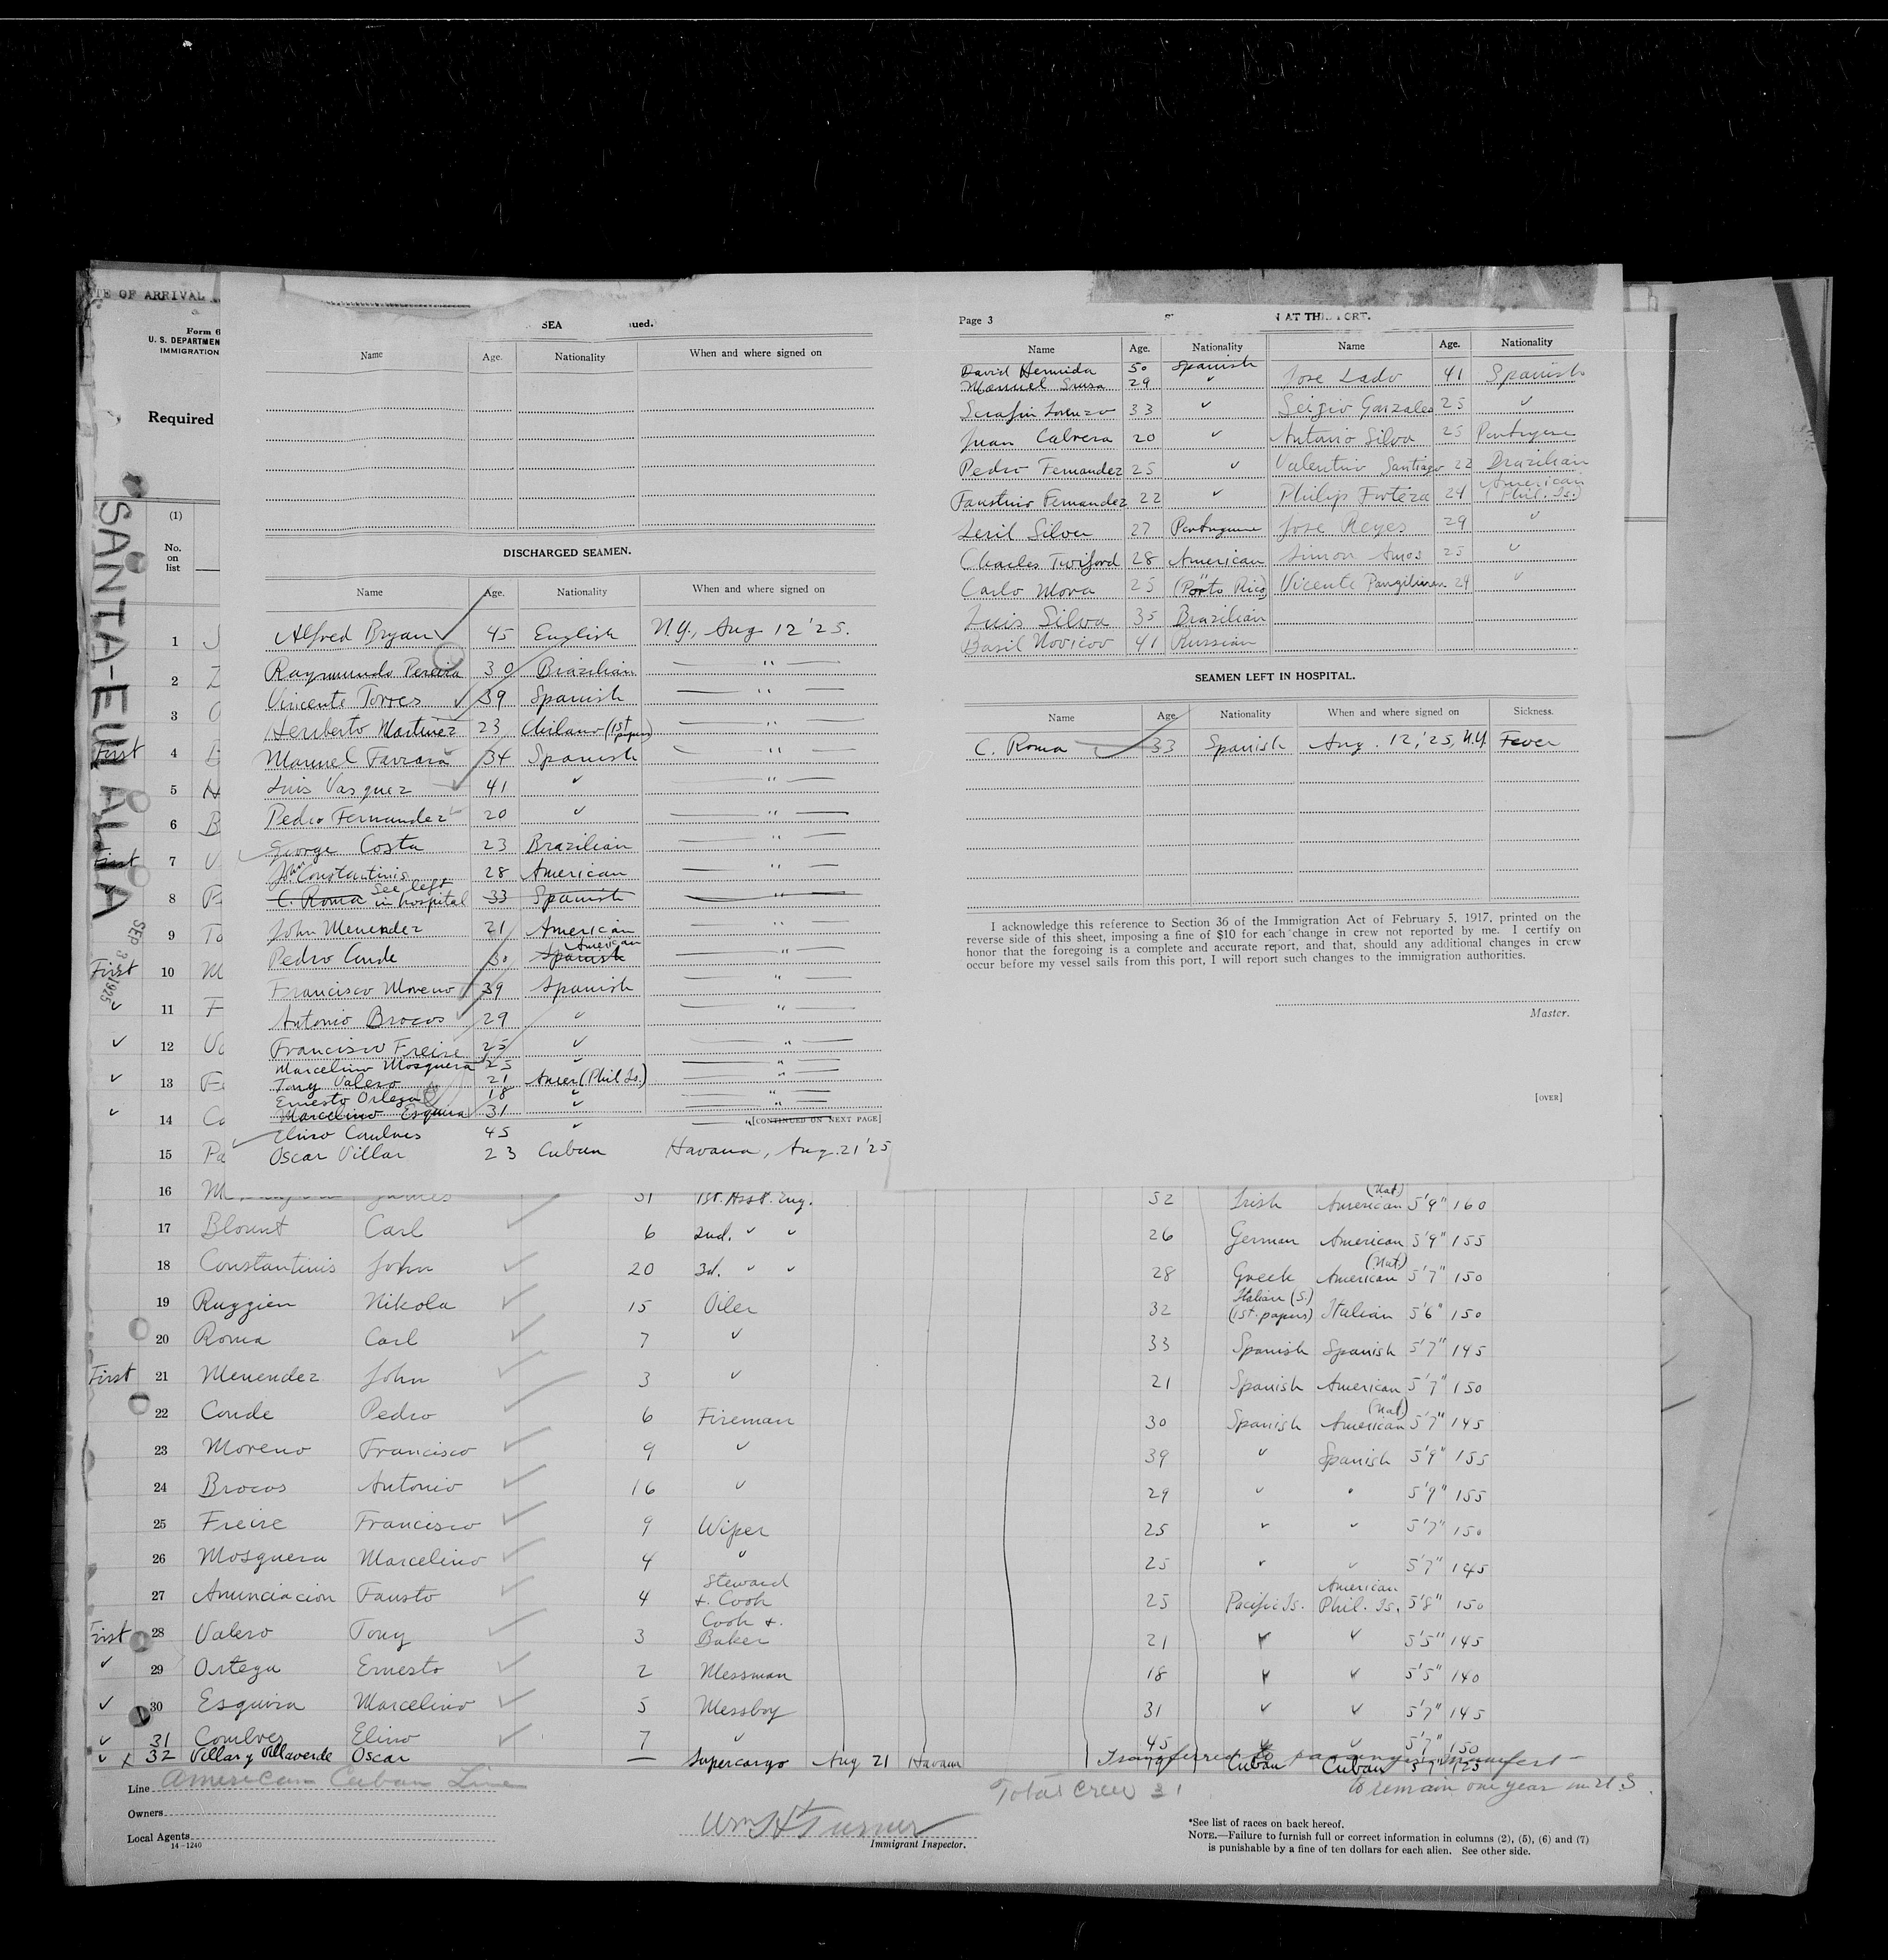 TE OF ARRIVAL
Form 6
U. S. DEPARTMEN
IMMIGRATION
Required
(1)
No.
on
list
SANTA-EULALIA
SEP 3 1925
SEA nued.
Name Age. Nationality When and where signed on
DISCHARGED SEAMEN.
Name Age. Nationality When and where signed on
Alfred Bryan 45 English N.Y., Aug 12 '25.
Raymundo Pereira 30 Brazilian — " —
Vincente Torres 39 Spanish — " —
Heriberto Martinez 23 Chilano (1st papers) — " —
Manuel Farrara 34 Spanish — " —
Luis Vasquez 41 " — " —
Pedro Fernandez 20 " — " —
George Costa 23 Brazilian — " —
John Constantinis 28 American — " —
C. Roma See left in hospital 33 Spanish — " —
John Menendez 21 American — " —
Pedro Conde 30 Spanish American — " —
Francisco Moreno 39 Spanish — " —
Antonio Brocos 29 " — " —
Francisco Freire 25 " — " —
Marcelino Mosquera 25 " — " —
Tony Valero 21 Amer (Phil Is.) — " —
Ernesto Ortega 18 " — " —
Marcelino Esquira 31 " — " —
[CONTINUED ON NEXT PAGE]
Elino Combres 45 "
Oscar Villar 23 Cuban Havana, Aug. 21 '25
Page 3
N AT THI PORT.
Name Age. Nationality Name Age. Nationality
David Hermida 50 Spanish Jose Lado 41 Spanish
Manuel Sousa 29 "
Serafin Lorenzo 33 " Sergio Gonzales 25 "
Juan Cabrera 20 " Antonio Silva 25 Portugese
Pedro Fernandez 25 " Valentino Santiago 22 Brazilian
Faustino Fernandez 22 " Philip Forteza 24 American (Phil. Is.)
Silva 27 Portuguese Jose Reyes 29 "
Charles Twiford 28 American Simon Amos 25 "
Carlo Mora 25 " (Porto Rico) Vicente Pangilinan 24 "
Luis Silva 35 Brazilian
Basil Novicov 41 Russian
SEAMEN LEFT IN HOSPITAL.
Name Age. Nationality When and where signed on Sickness.
C. Roma 33 Spanish Aug. 12, '25, N.Y. Fever
I acknowledge this reference to Section 36 of the Immigration Act of February 5, 1917, printed on the
reverse side of this sheet, imposing a fine of $10 for each change in crew not reported by me. I certify on
honor that the foregoing is a complete and accurate report, and that, should any additional changes in crew
occur before my vessel sails from this port, I will report such changes to the immigration authorities.
Master.
[OVER]
1 J
2
3
First 4
5
6 B
First 7
8
9 To
First 10 M
✓ 11 F
✓ 12
✓ 13
✓ 14
15 Pa
16 M James 31 1st. Asst. Eng. 52 Irish American (Nat.) 5'9" 160
17 Blount Carl 6 2nd. " " 26 German American 5'9" 155
18 Constantinis John 20 3d. " " 28 Greek American (Nat.) 5'7" 150
19 Ruggieri Nikola 15 Oiler 32 Italian (S.) (1st. papers) Italian 5'6" 150
20 Roma Carl 7 " 33 Spanish Spanish 5'7" 145
First 21 Menendez John 3 " 21 Spanish American 5'7" 150
22 Conde Pedro 6 Fireman 30 Spanish American (Nat.) 5'7" 145
23 Moreno Francisco 9 " 39 " Spanish 5'9" 155
24 Brocos Antonio 16 " 29 " " 5'9" 155
25 Freire Francisco 9 Wiper 25 " " 5'7" 150
26 Mosquera Marcelino 4 " 25 " " 5'7" 145
27 Anunciacion Fausto 4 Steward & Cook 25 Pacific Is. American Phil. Is. 5'8" 150
First 28 Valero Tony 3 Cook & Baker 21 " " 5'5" 145
✓ 29 Ortega Ernesto 2 Messman 18 " " 5'5" 140
✓ 30 Esquira Marcelino 5 Messboy 31 " " 5'7" 145
✓ 31 Combres Elino 7 " 45 " " 5'7" 150
✓ x 32 Villar y Villaverde Oscar — Supercargo Aug 21 Havana Cuban Cuban 5'7" 125
Transferred to passenger manifest –
to remain one year in U.S.
Line American Cuban Line
Total crew 31
Owners
Local Agents
14—1240
Wm H Turner
Immigrant Inspector.
*See list of races on back hereof.
NOTE.—Failure to furnish full or correct information in columns (2), (5), (6) and (7)
is punishable by a fine of ten dollars for each alien. See other side.